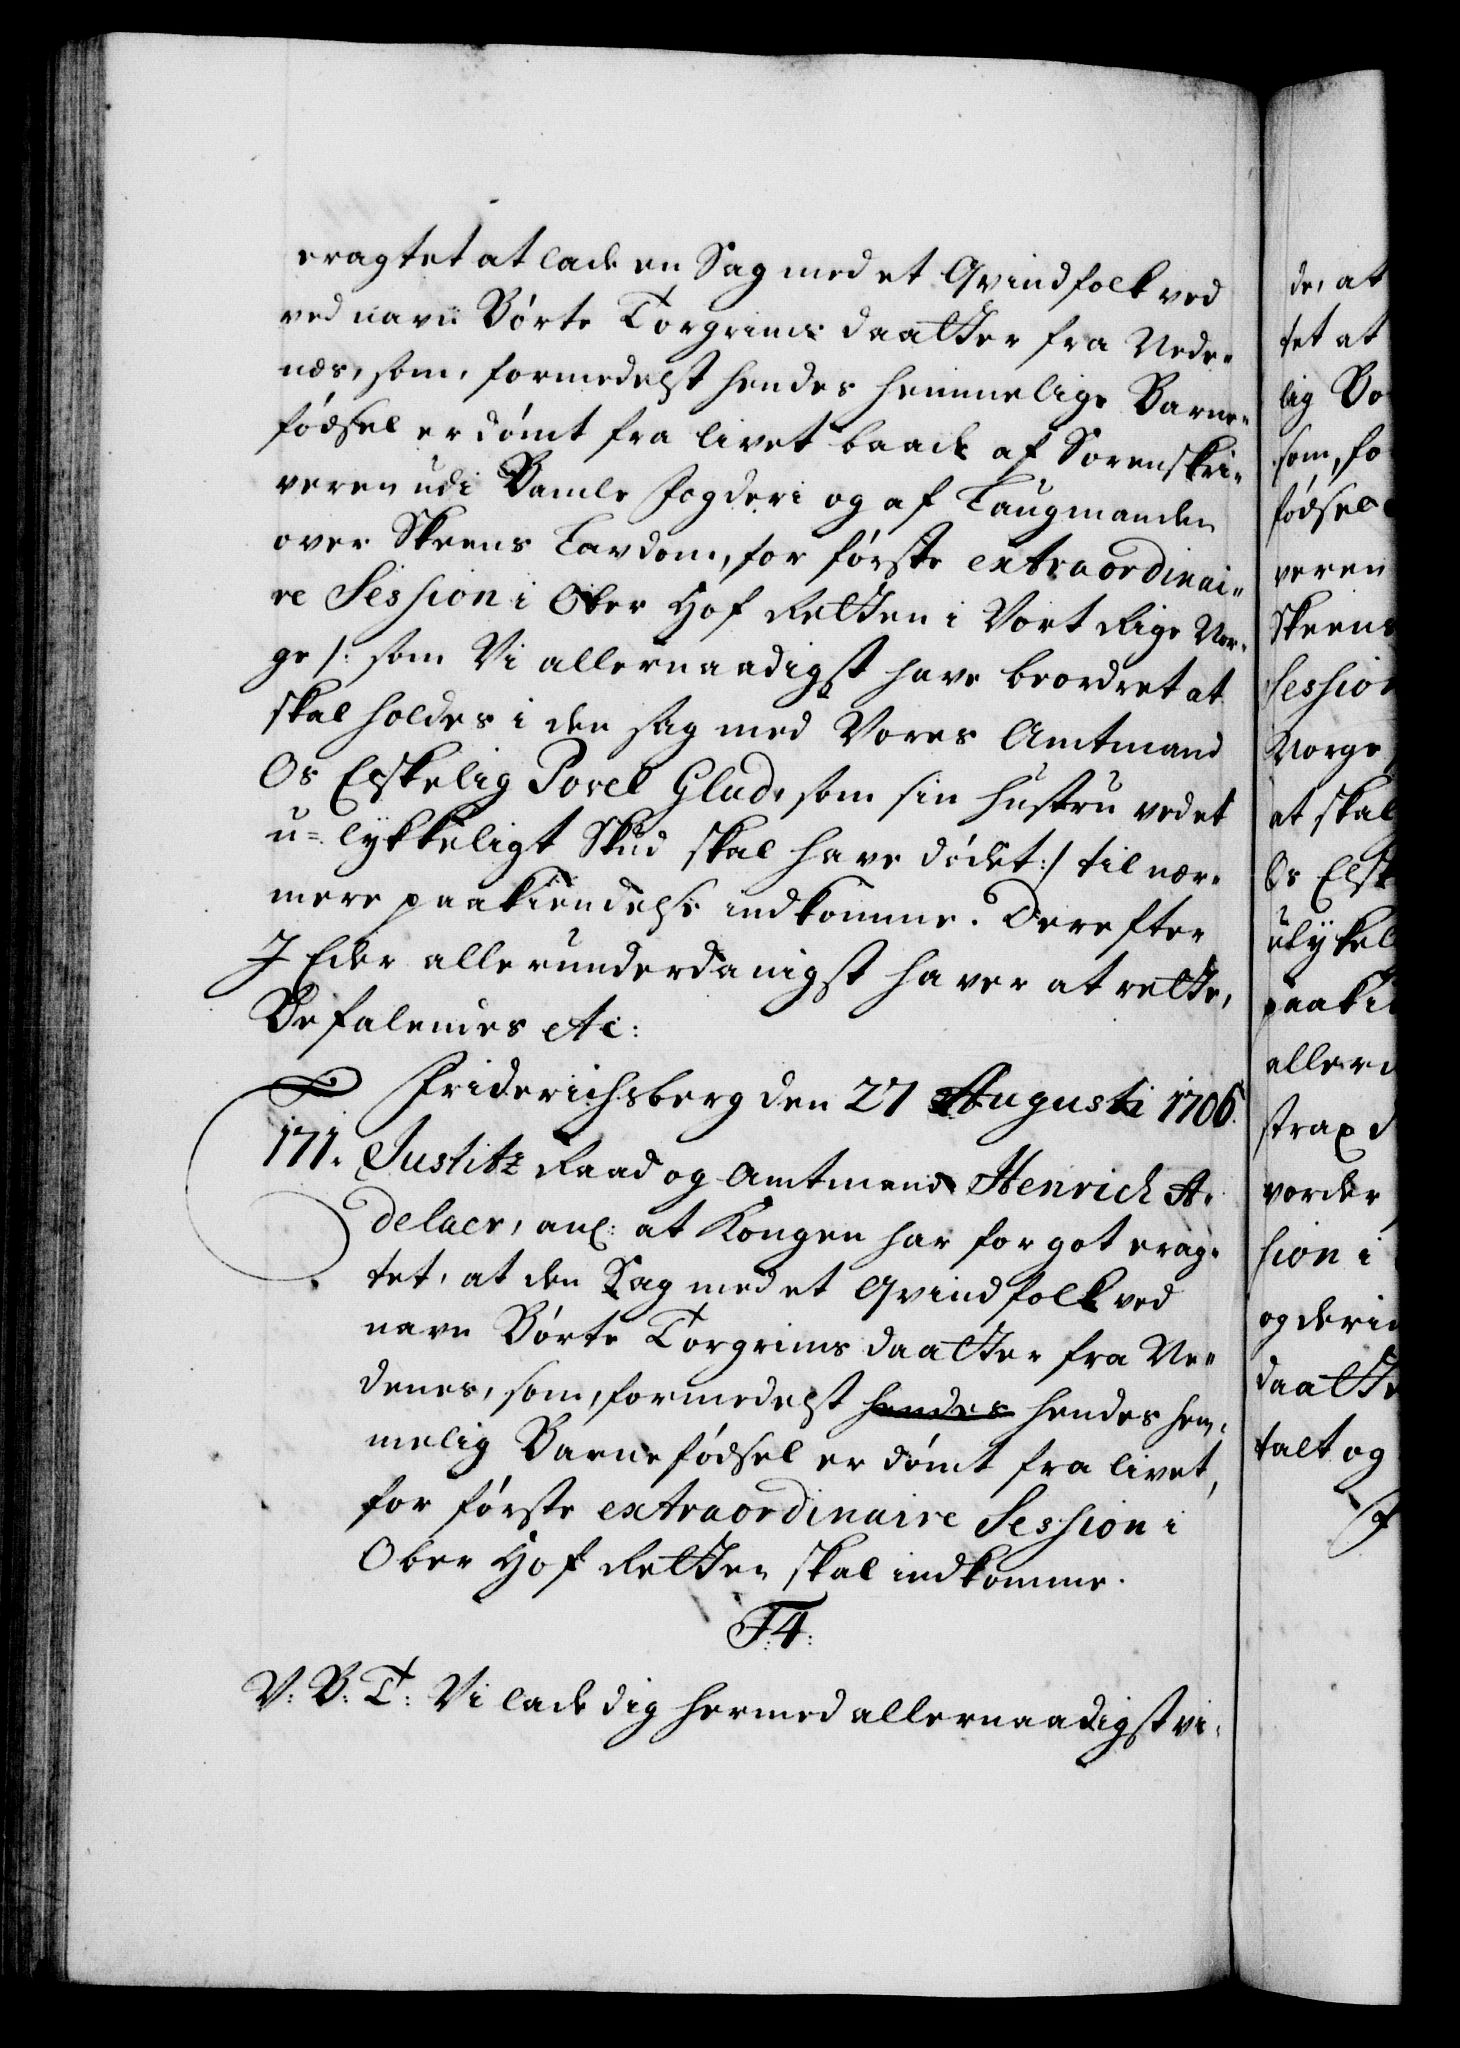 eragtet at lade en Sag med et Qvindfolk ved
ved navn Børte Torgrims daatter fra Nede-
næs, som, formedelst hendes hemmelige Barne-
fødsel er dømt fra livet baade af Sorenskri-
veren udi Bamle fogderi og af Laugmanden
over Skeens Lavdom, for første extraordinai-
re Session i Ober Hof Retten i Vort Rige Nor-
ge /: som Vi allernaadigst have beordret at
skal holdes i den sag med Vores Amtmand
Os Elskelig Povel Glud, som sin hustru ved et
u-lykkeligt Skud skal have dødet :/ til nær-
mere paakiendelse indkomme. Derefter
I Eder allerunderdanigst haver at rette,
Befalendes etc:
Friderichsberg den 27 Augusti 1706.
171. Justitz Raad og Amtmand Henrich A-
delaer, anl: at Kongen har for got erag-
tet, at den Sag med et Qvindfolk ved
navn Børte Torgrims daatter fra Ne-
denes, som, formedelst hendes hendes hem-
melig Barnefødsel er dømt fra livet,
for første extraordinaire Session i
Ober Hof Retten skal indkomme.
F4:
V: B: T: Vi lade dig hermed allernaadigst vi-
de, at
tet at
lig Bo
som, fo
fødsel
veren
Skeens
Session
Norge
at skal
Os Elsk
ulykel
paaki
allerd
strax d
vorder
sion i
og deri
daatte
talt og